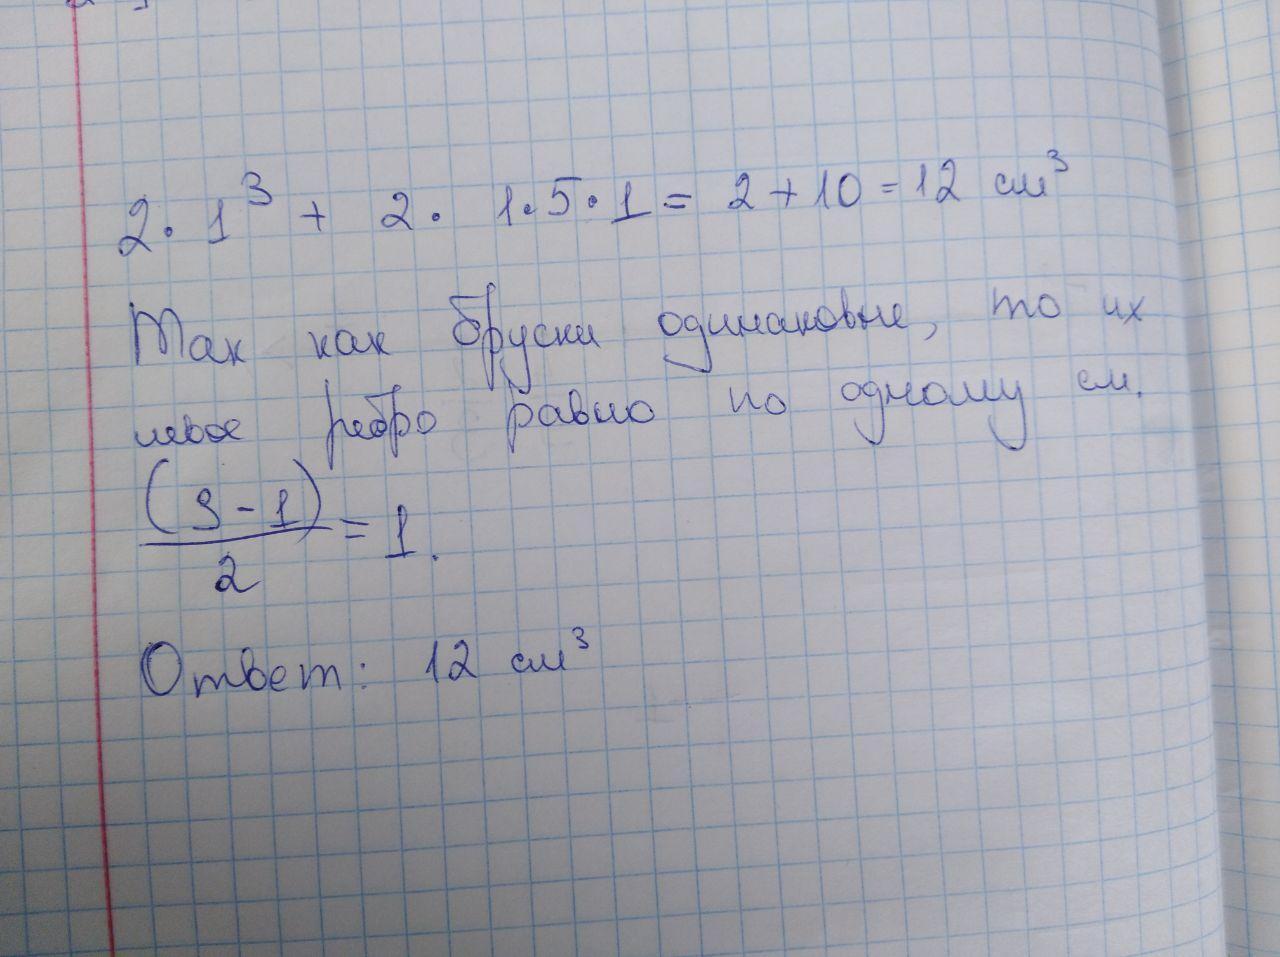 2 · 1³ + 2 · 1 · 5 · 1 = 2 + 10 = 12 см³
Так как бруски одинаковые, то их
левое ребро равно по одному см.
(3 - 1)/2 = 1.
Ответ: 12 см³